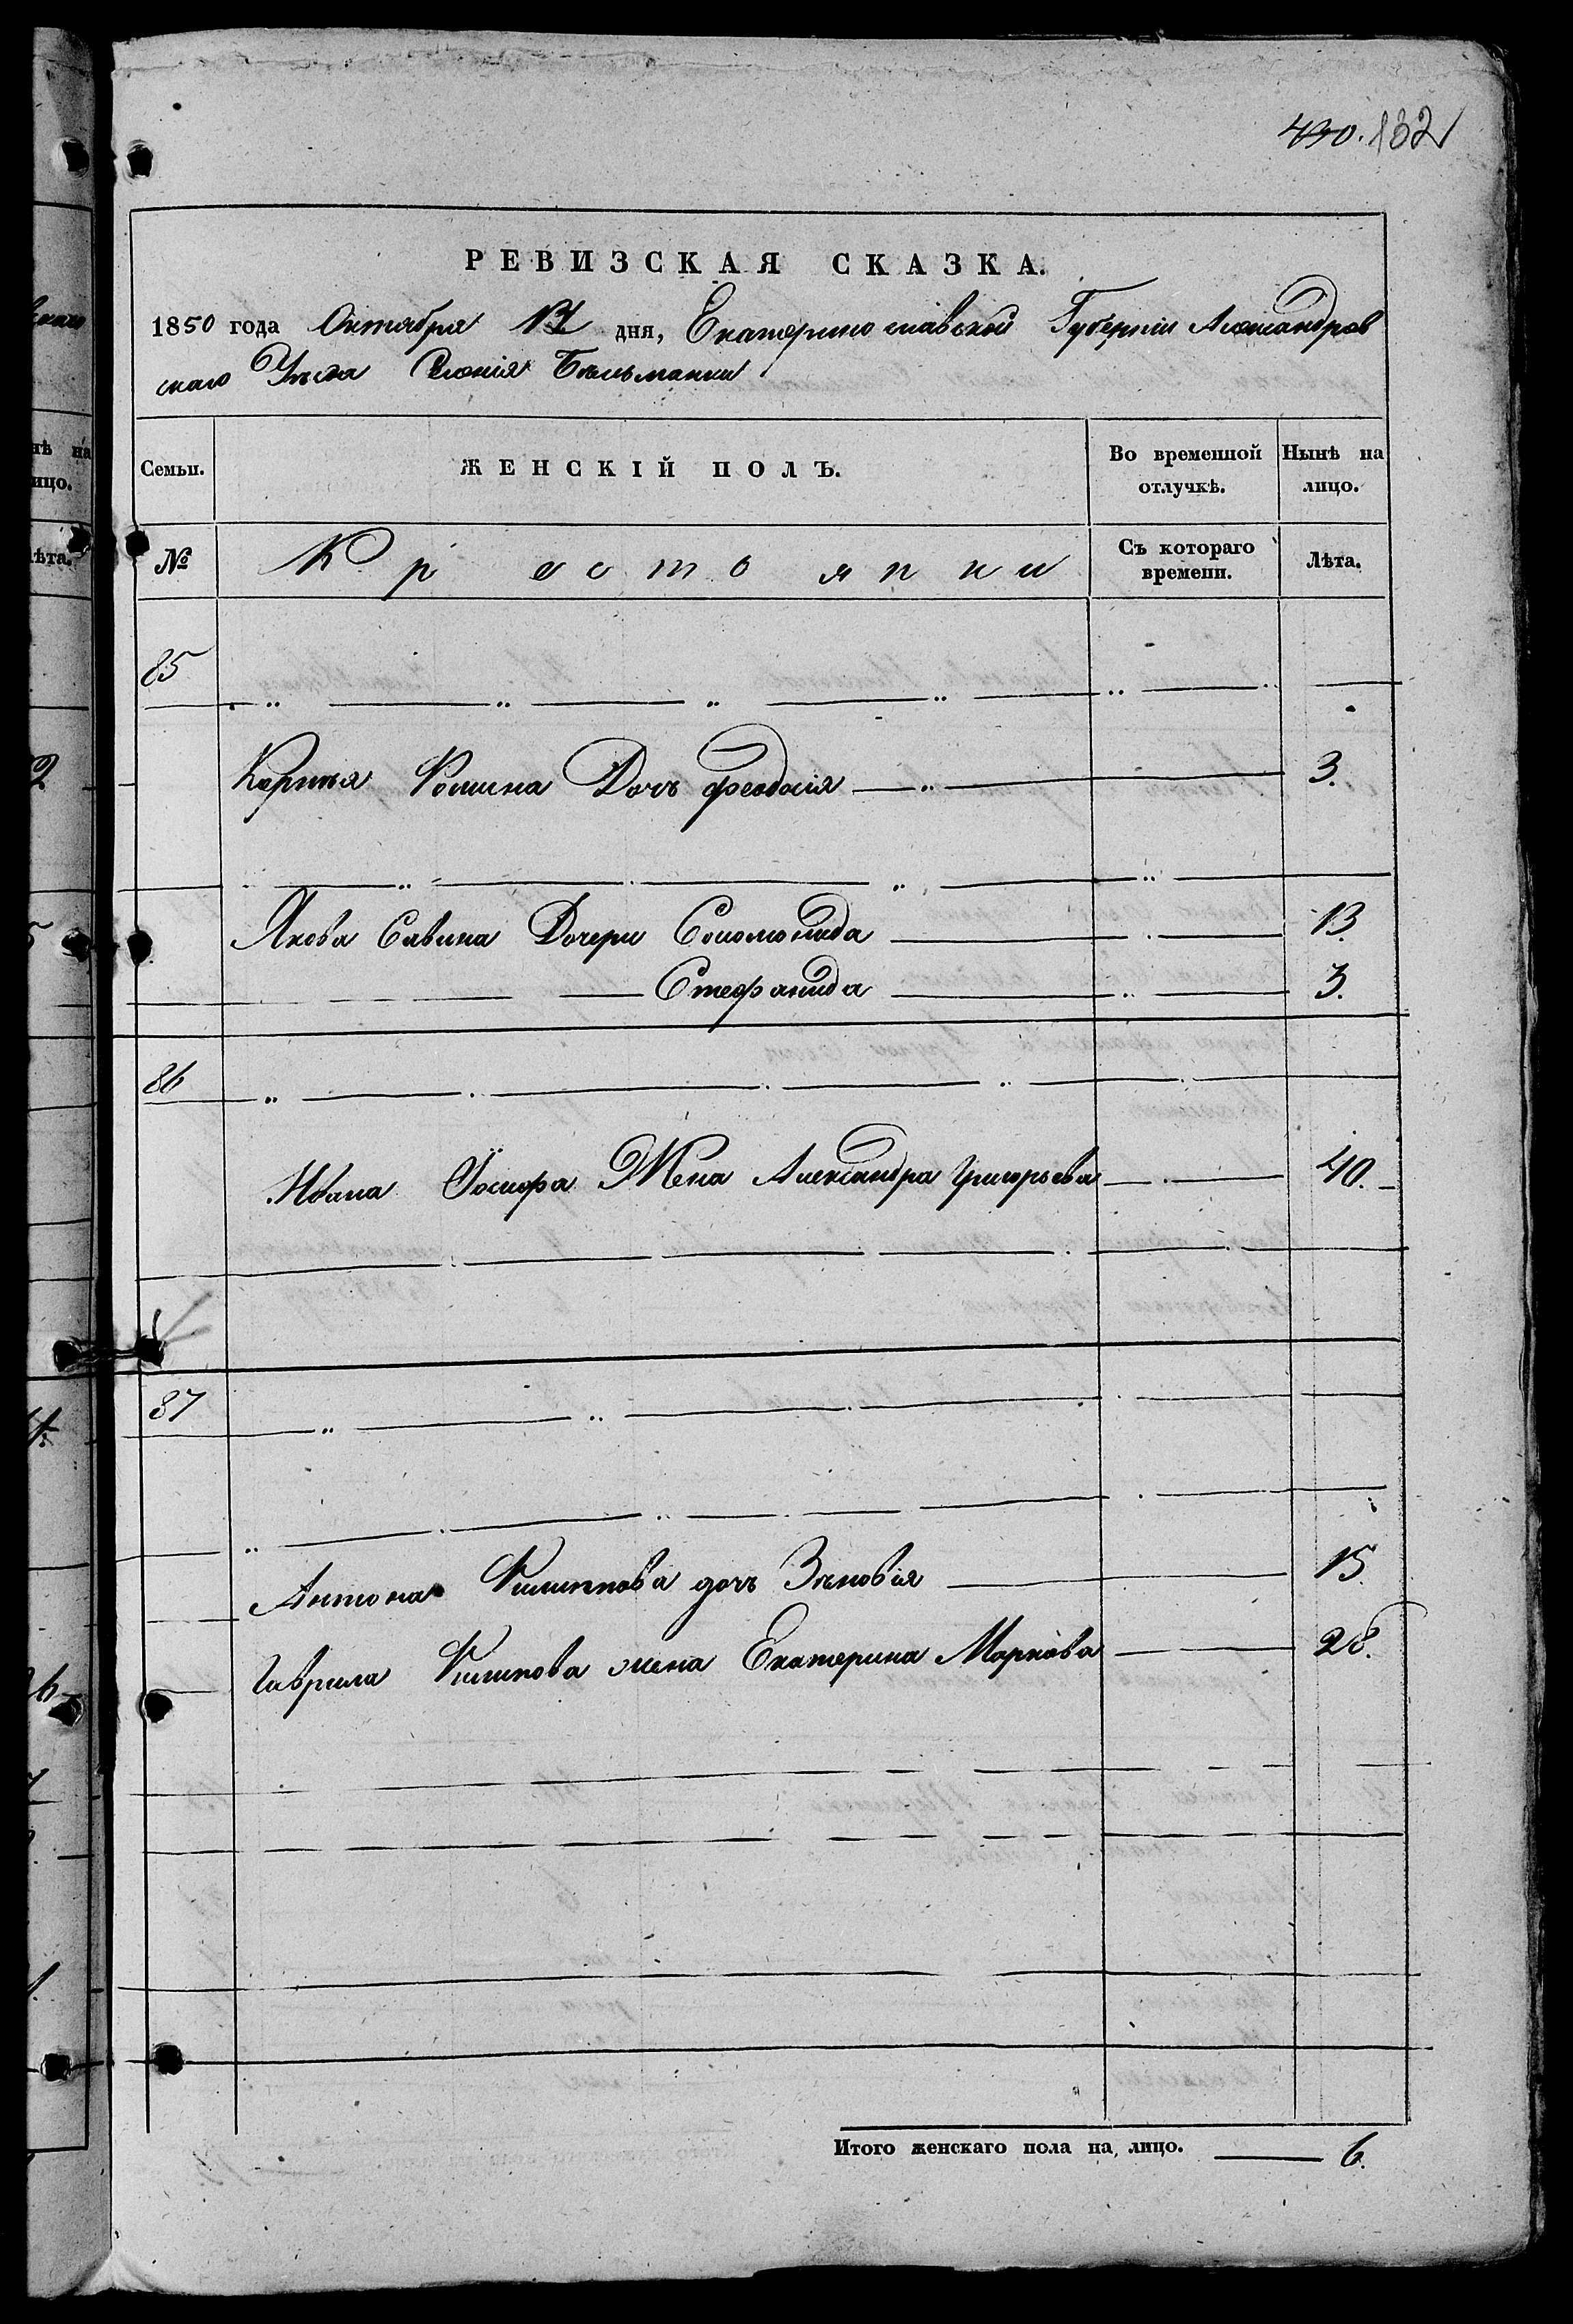 430. 132
РЕВИЗСКАЯ СКАЗКА.
1850 года Октября дня, Екатеринославской Губерніи Александров
скаго Уѣзда Селенія Бѣльманки
Семьи. ЖЕНСКІЙ ПОЛЪ. Во временной отлучкѣ. Нынѣ на лицо.
№ Крестьянки Съ котораго времени. Лѣта.
85
Карпѣя Фомина Дочь Феодосія 3.
Якова Савина Дочери Соломонида 13.
Стефанида 3.
86
Ивана Іосифа Жена Александра Григорьева 40.
87
Антона Филиппова дочь Зѣновія 15.
Гаврила Филипова жена Екатерина Маркова 28.
Итого женскаго пола на лицо. 6.